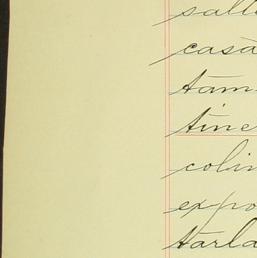 salt
casa
tam
tine
colin
expo
tarla